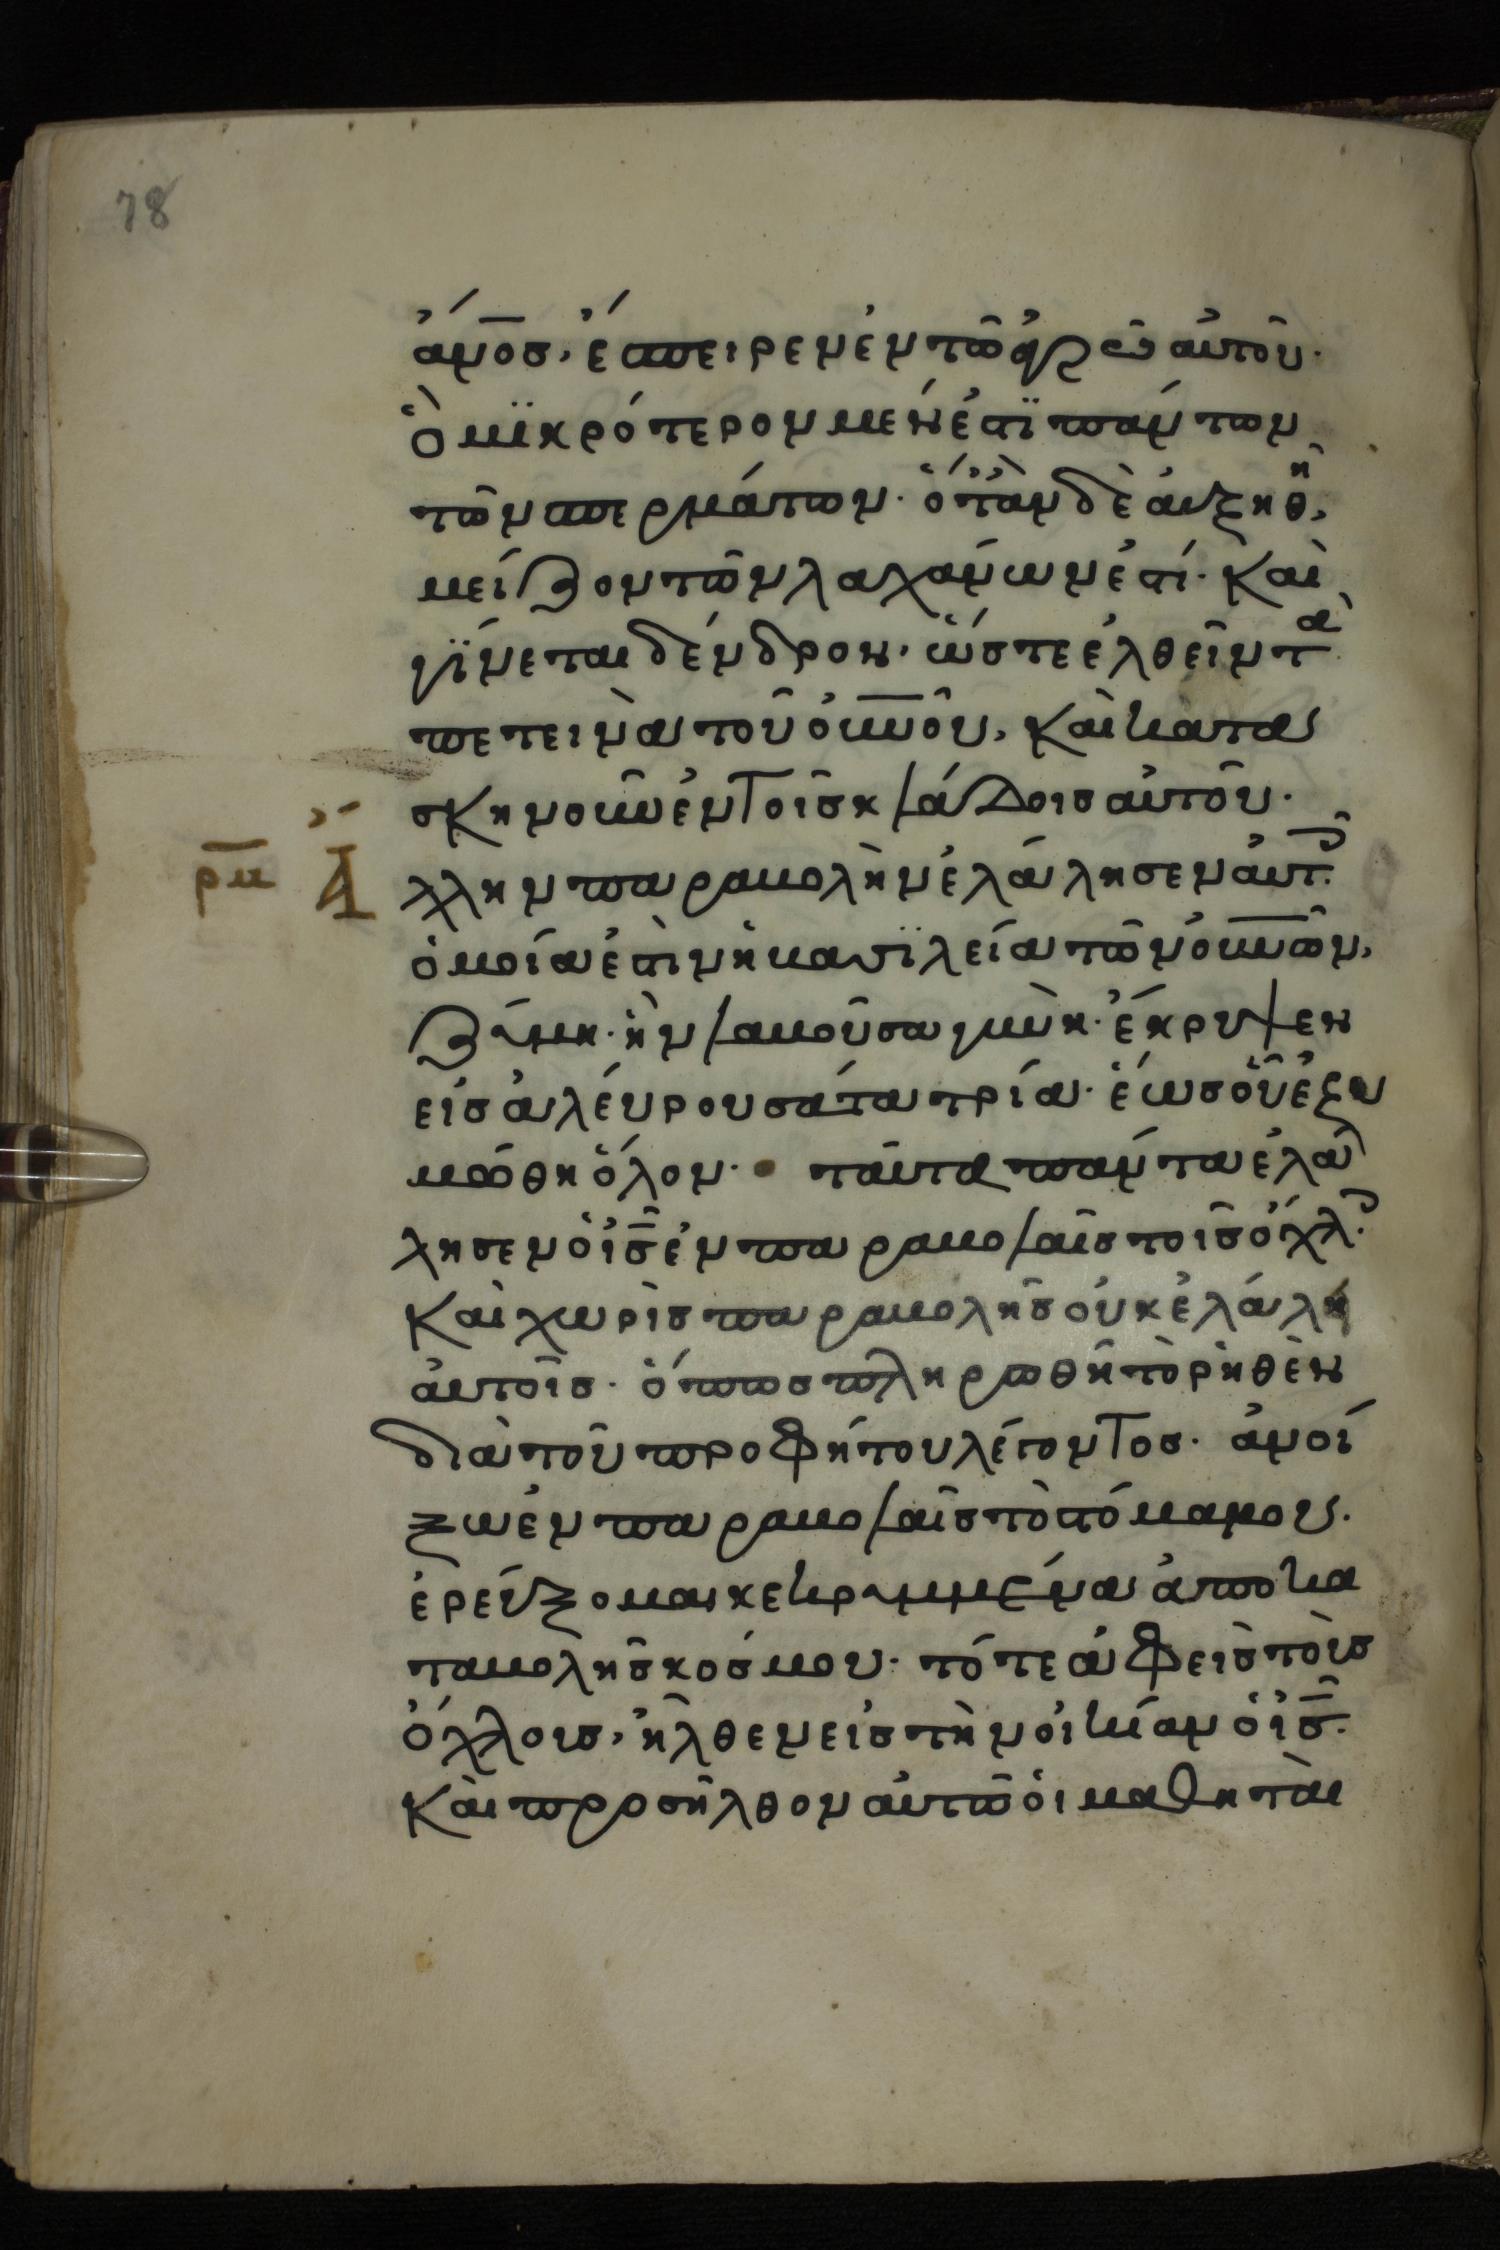 78
ἄν̅ο̅σ̅, ἔσπειρεν ἐν τῶ ἀγρῶ αὐτοῦ·
ὃ μϊκρότερον μέν ἐστϊ πάντων
τῶν σπερμάτων· ὅτὰν δὲ αὐξηθῆ,
μείζον τῶν λαχάνων ἐστί· καὶ
γΐνεται δένδρον, ὥστε ἐλθεῖν τὰ
πετεινὰ τοῦ ο̅υ̅ν̅ο̅ῦ̅, καὶ κατα
σκηνοῦν ἐν τοῖσ κλάδοισ αὐτοῦ·
ρ̅κ̅ Ἄ
λλην παραβολὴν ἐλάλησεν αὐτοῖσ·
ὁμοία ἐστὶν ἡ βασϊλεία τῶν ο̅υ̅ν̅ῶ̅ν̅,
ζύμη· ἣν λαβοῦσα γυνὴ· ἔκρυψεν
εἰσ ἀλέυρου σάτα τρία· ἕωσ οὗ ἐζυ
μώθη ὅλον· ταῦτα πάντα ἐλά
λησεν ὁ ι̅σ̅ ἐν παραβολαῖσ τοῖσ ὄχλοισ·
καὶ χωρὶσ παραβολῆσ οὐκ ἐλάλει
αὐτοῖσ· ὅπωσ πληρωθῆ τὸ ρηθὲν
διὰ τοῦ προφήτου λέγοντοσ· ἀνοί
ξω ἐν παραβολαῖσ τὸ στόμα μου·
ἐρεύξομαι κεκρυμμένα ἀπὸ κα
ταβολῆσ κοσμου· τότε ἀφεὶσ τοὺσ
ὄχλουσ, ἦλθεν εἰσ τὴν οἰκίαν ὁ ι̅σ̅·
καὶ προσῆλθον αὐτῶ ὁι μαθηταὶ